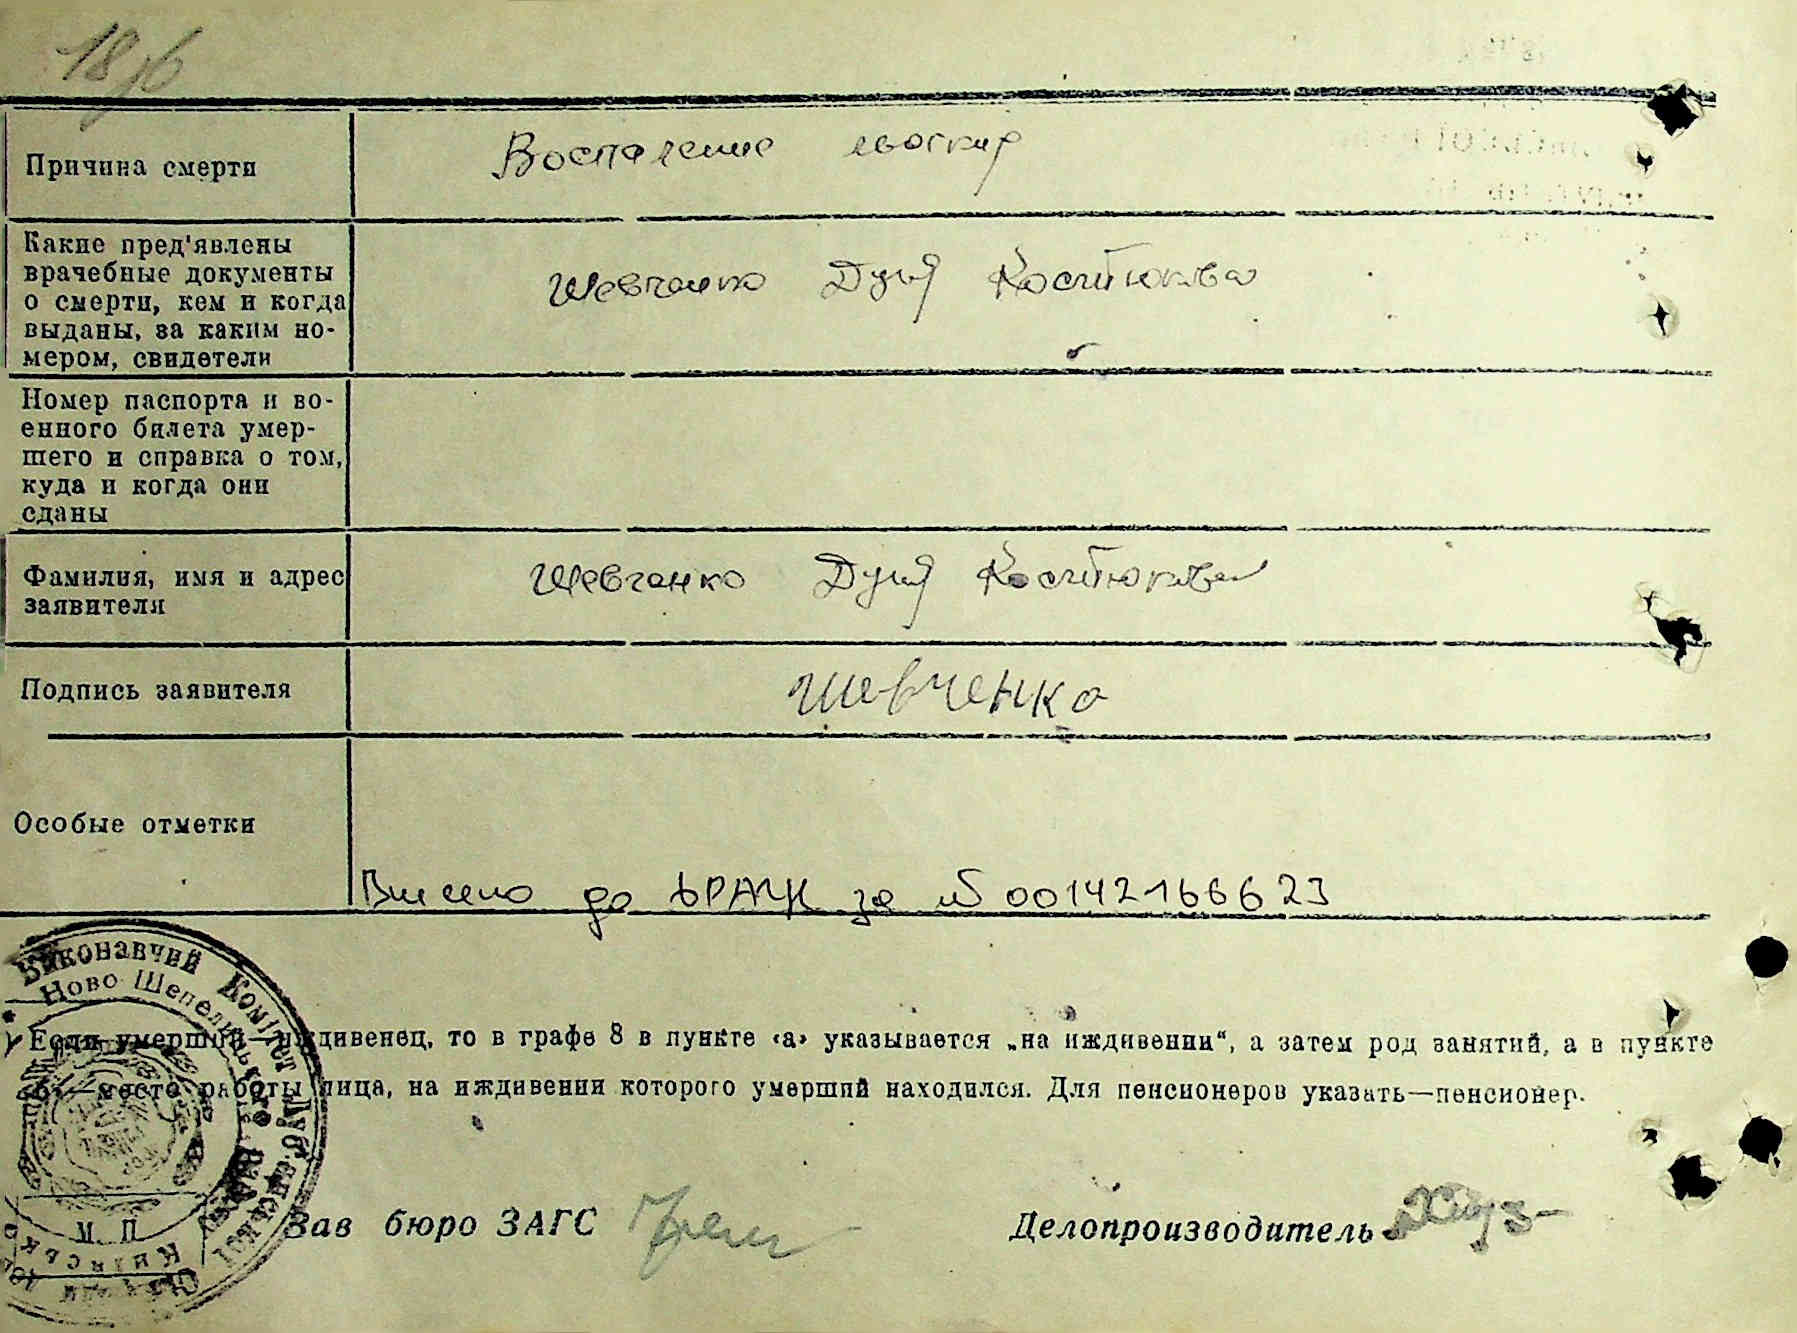 18/6
Причина смерти
Воспаление легких
Какие пред'явлены
врачебные документы
о смерти, кем и когда
выданы, за каким но-
мером, свидетели
Шевченко Дуня Костюкова
Номер паспорта и во-
енного билета умер-
шего и справка о том,
куда и когда они
сданы
Фамилия, имя и адрес
заявителя
Шевченко Дуня Костюкова
Подпись заявителя
Шевченко
Особые отметки
Внесено до ДРАЦС за № 00142166623
Виконавчий Комітет
Ново Шепелицько
*) Если умерший—иждивенец, то в графе 8 в пункте «а» указывается „на иждивении“, а затем род занятий, а в пункте
«б»—место работы лица, на иждивении которого умерший находился. Для пенсионеров указать—пенсионер.
М. П.
Зав бюро ЗАГС
Делопроизводитель